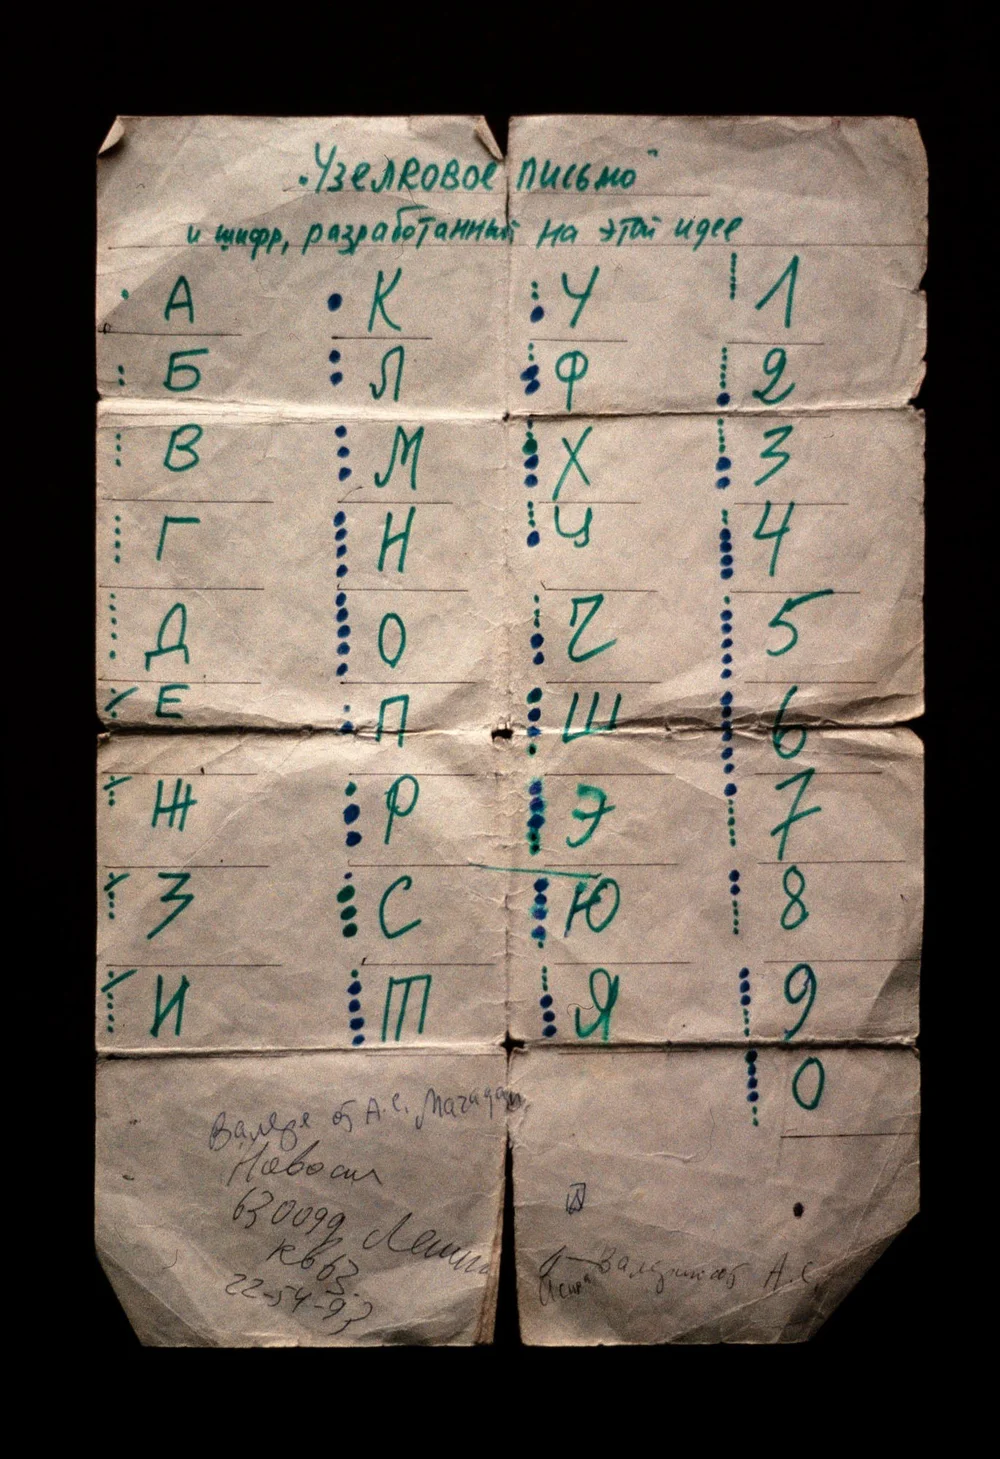 Узелковое письмо
и шифр, разработанный на этой идее
А
Б
В
Г
Д
Е
Ж
З
И
К
Л
М
Н
О
П
Р
С
Т
У
Ф
Х
Ц
Ч
Ш
Э
Ю
Я
1
2
3
4
5
6
7
8
9
0
Валере от А.С. Магадан
Новосиб
630099
кв 63.
22-54-93
А.С.